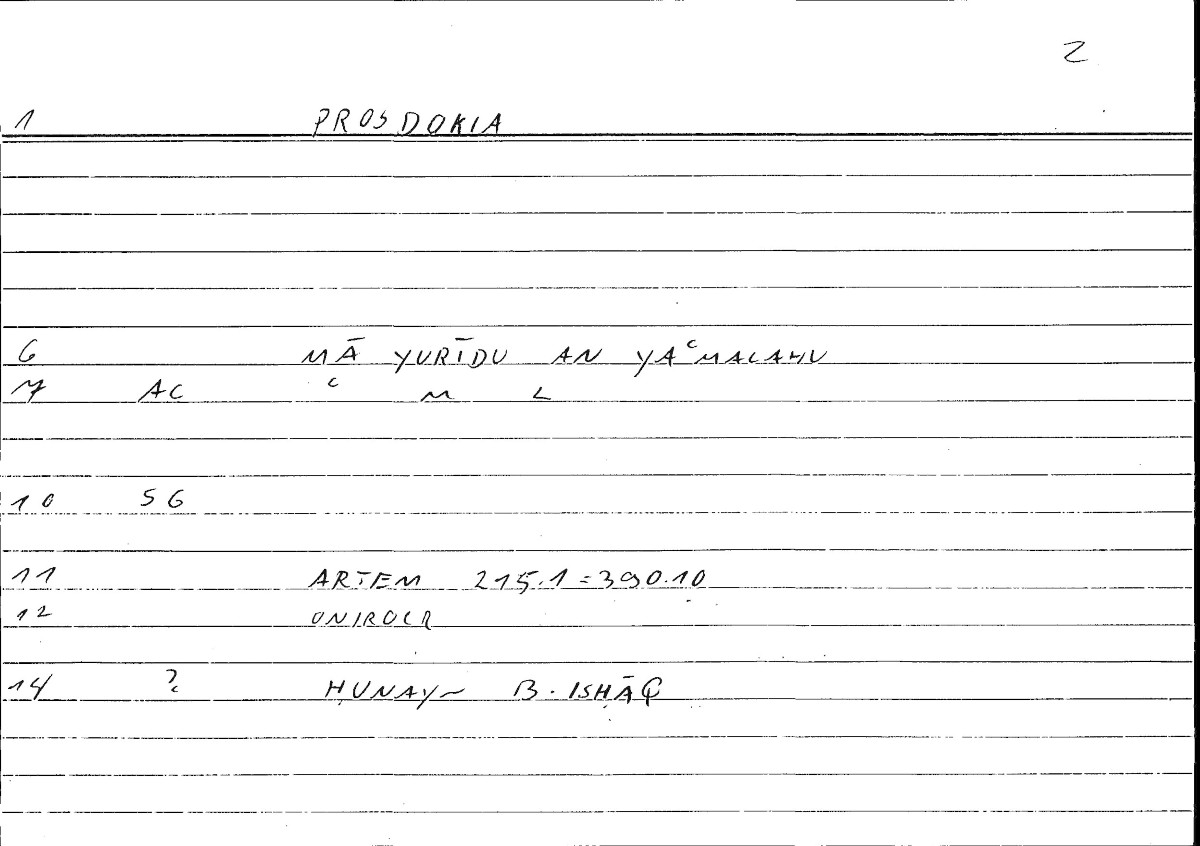 2
1 PROSDOKIA
6 MĀ YURĪDU AN YAʿMALAHU
7 AC ʿ M L
10 SG
11 ARTEM 215.1=390.10
12 ONIROCR
14 ? ḤUNAYN B. ISḤĀQ